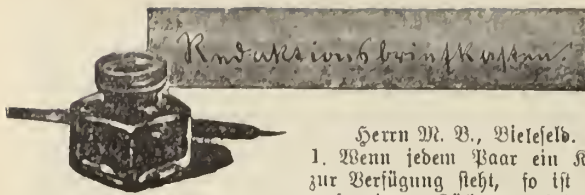 Redaktionsbriefkasten.
Herrn M. B., Bielefeld.
1. Wenn jedem Paar ein
zur Verfügung steht, so ist